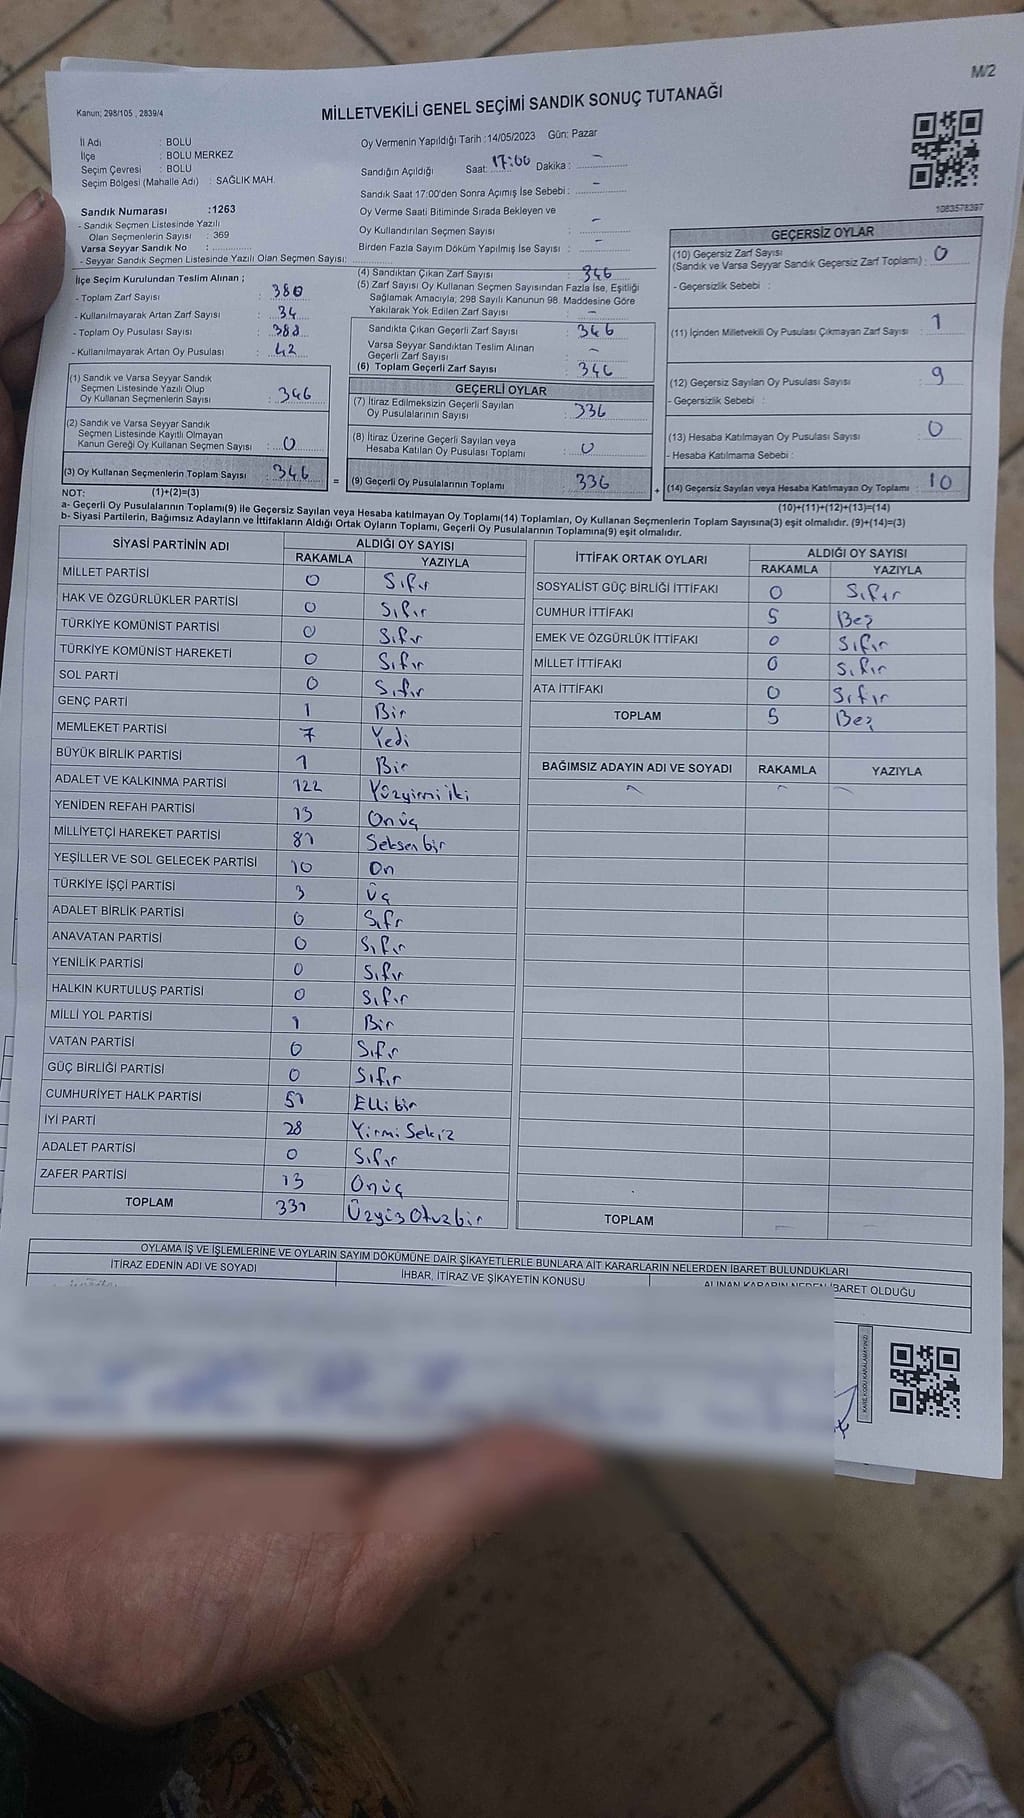 M/2
Kanun; 298/105 , 2839/4
MİLLETVEKİLİ GENEL SEÇİMİ SANDIK SONUÇ TUTANAĞI
İl Adı : BOLU
İlçe : BOLU MERKEZ
Seçim Çevresi : BOLU
Seçim Bölgesi (Mahalle Adı) : SAĞLIK MAH.
Sandık Numarası :1263
- Sandık Seçmen Listesinde Yazılı
Olan Seçmenlerin Sayısı : 369
Varsa Seyyar Sandık No :
- Seyyar Sandık Seçmen Listesinde Yazılı Olan Seçmen Sayısı:
Oy Vermenin Yapıldığı Tarih :14/05/2023 Gün: Pazar
Sandığın Açıldığı Saat: 17:00 Dakika : -
Sandık Saat 17:00'den Sonra Açımış İse Sebebi : -
Oy Verme Saati Bitiminde Sırada Bekleyen ve
Oy Kullandırılan Seçmen Sayısı : -
Birden Fazla Sayım Döküm Yapılmış İse Sayısı : -
1083578397
İlçe Seçim Kurulundan Teslim Alınan ;
- Toplam Zarf Sayısı : 380
- Kullanılmayarak Artan Zarf Sayısı : 34
- Toplam Oy Pusulası Sayısı : 388
- Kullanılmayarak Artan Oy Pusulası : 42
(1) Sandık ve Varsa Seyyar Sandık
Seçmen Listesinde Yazılı Olup
Oy Kullanan Seçmenlerin Sayısı : 346
(2) Sandık ve Varsa Seyyar Sandık
Seçmen Listesinde Kayıtlı Olmayan
Kanun Gereği Oy Kullanan Seçmen Sayısı : 0
(3) Oy Kullanan Seçmenlerin Toplam Sayısı : 346
(4) Sandıktan Çıkan Zarf Sayısı : 346
(5) Zarf Sayısı Oy Kullanan Seçmen Sayısından Fazla İse, Eşitliği
Sağlamak Amacıyla; 298 Sayılı Kanunun 98. Maddesine Göre
Yakılarak Yok Edilen Zarf Sayısı : -
Sandıkta Çıkan Geçerli Zarf Sayısı : 346
Varsa Seyyar Sandıktan Teslim Alınan
Geçerli Zarf Sayısı : -
(6) Toplam Geçerli Zarf Sayısı : 346
GEÇERLİ OYLAR
(7) İtiraz Edilmeksizin Geçerli Sayılan
Oy Pusulalarının Sayısı : 336
(8) İtiraz Üzerine Geçerli Sayılan veya
Hesaba Katılan Oy Pusulası Toplamı : 0
= (9) Geçerli Oy Pusulalarının Toplamı : 336
GEÇERSİZ OYLAR
(10) Geçersiz Zarf Sayısı
(Sandık ve Varsa Seyyar Sandık Geçersiz Zarf Toplamı) : 0
- Geçersizlik Sebebi :
(11) İçinden Milletvekili Oy Pusulası Çıkmayan Zarf Sayısı : 1
(12) Geçersiz Sayılan Oy Pusulası Sayısı : 9
- Geçersizlik Sebebi :
(13) Hesaba Katılmayan Oy Pusulası Sayısı : 0
- Hesaba Katılmama Sebebi :
+ (14) Geçersiz Sayılan veya Hesaba Katılmayan Oy Toplamı : 10
NOT: (1)+(2)=(3)
(10)+(11)+(12)+(13)=(14)
a- Geçerli Oy Pusulalarının Toplamı(9) ile Geçersiz Sayılan veya Hesaba katılmayan Oy Toplamı(14) Toplamları, Oy Kullanan Seçmenlerin Toplam Sayısına(3) eşit olmalıdır. (9)+(14)=(3)
b- Siyasi Partilerin, Bağımsız Adayların ve İttifakların Aldığı Ortak Oyların Toplamı, Geçerli Oy Pusulalarının Toplamına(9) eşit olmalıdır.
SİYASİ PARTİNİN ADI ALDIĞI OY SAYISI
RAKAMLA YAZIYLA
MİLLET PARTİSİ 0 Sıfır
HAK VE ÖZGÜRLÜKLER PARTİSİ 0 Sıfır
TÜRKİYE KOMÜNİST PARTİSİ 0 Sıfır
TÜRKİYE KOMÜNİST HAREKETİ 0 Sıfır
SOL PARTİ 0 Sıfır
GENÇ PARTİ 1 Bir
MEMLEKET PARTİSİ 7 Yedi
BÜYÜK BİRLİK PARTİSİ 1 Bir
ADALET VE KALKINMA PARTİSİ 122 Yüzyirmi iki
YENİDEN REFAH PARTİSİ 13 Onüç
MİLLİYETÇİ HAREKET PARTİSİ 81 Seksen bir
YEŞİLLER VE SOL GELECEK PARTİSİ 10 On
TÜRKİYE İŞÇİ PARTİSİ 3 Üç
ADALET BİRLİK PARTİSİ 0 Sıfır
ANAVATAN PARTİSİ 0 Sıfır
YENİLİK PARTİSİ 0 Sıfır
HALKIN KURTULUŞ PARTİSİ 0 Sıfır
MİLLİ YOL PARTİSİ 1 Bir
VATAN PARTİSİ 0 Sıfır
GÜÇ BİRLİĞİ PARTİSİ 0 Sıfır
CUMHURİYET HALK PARTİSİ 51 Elli bir
İYİ PARTİ 28 Yirmi Sekiz
ADALET PARTİSİ 0 Sıfır
ZAFER PARTİSİ 13 Onüç
TOPLAM 331 Üzyüz Otuz bir
İTTİFAK ORTAK OYLARI ALDIĞI OY SAYISI
RAKAMLA YAZIYLA
SOSYALİST GÜÇ BİRLİĞİ İTTİFAKI 0 Sıfır
CUMHUR İTTİFAKI 5 Beş
EMEK VE ÖZGÜRLÜK İTTİFAKI 0 Sıfır
MİLLET İTTİFAKI 0 Sıfır
ATA İTTİFAKI 0 Sıfır
TOPLAM 5 Beş
BAĞIMSIZ ADAYIN ADI VE SOYADI RAKAMLA YAZIYLA
- - -
TOPLAM - -
OYLAMA İŞ VE İŞLEMLERİNE VE OYLARIN SAYIM DÖKÜMÜNE DAİR ŞİKAYETLERLE BUNLARA AİT KARARLARIN NELERDEN İBARET BULUNDUKLARI
İTİRAZ EDENİN ADI VE SOYADI İHBAR, İTİRAZ VE ŞİKAYETİN KONUSU ALINAN KARARIN NEDEN İBARET OLDUĞU
KARE KODU KARALAMAYINIZ!